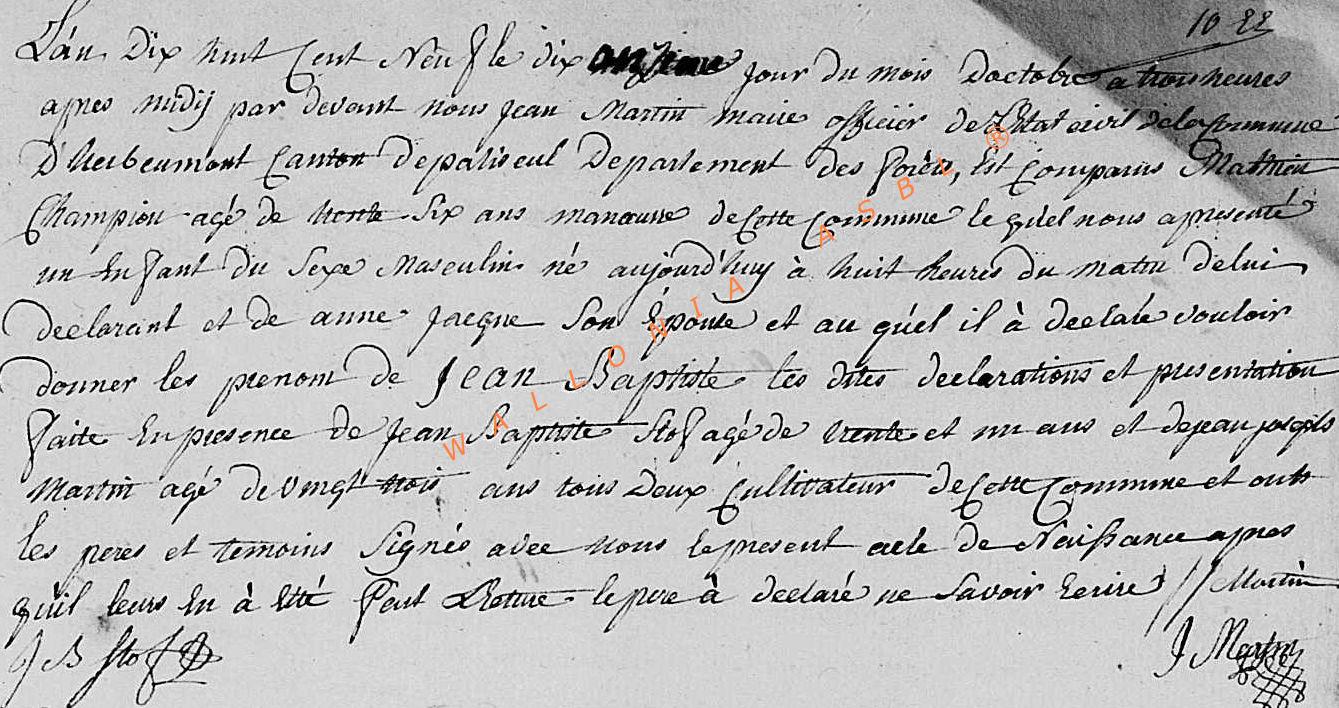 10 22
L'an Dix huit Cent Neuf le dix jour du mois Doctobre a trois heures
apres midy par devant nous jean Martin maire officier de L'Etat civil de la Commune
D'herbeumont Canton de paliseul Departement des forêts, Est Comparus Mathieu
Champion agé de trente Six ans manœuvre de Cette Commune le qúel nous a presenté
un Enfant du Sexe Masculin né aujourd'huy à huit heures du matin de lui
declarant et de anne jacque Son Epouse et au qúel il à declaré vouloir
donner les prenom de Jean Baptiste les dites declarations et presentation
faite En presence de jean Baptiste Stof agé de trente et un ans et de jean joseph
Martin agé de vingt trois ans tous Deux Cultivateur de Cette Commune et ont
les peres et temoins Signés avec nous le present acte de Naissance apres
qúil leurs En à Eté fait Lecture le pere à declaré ne Savoir Ecrire // Martin
J B Stof J Martin
WALLONIA ASBL ®